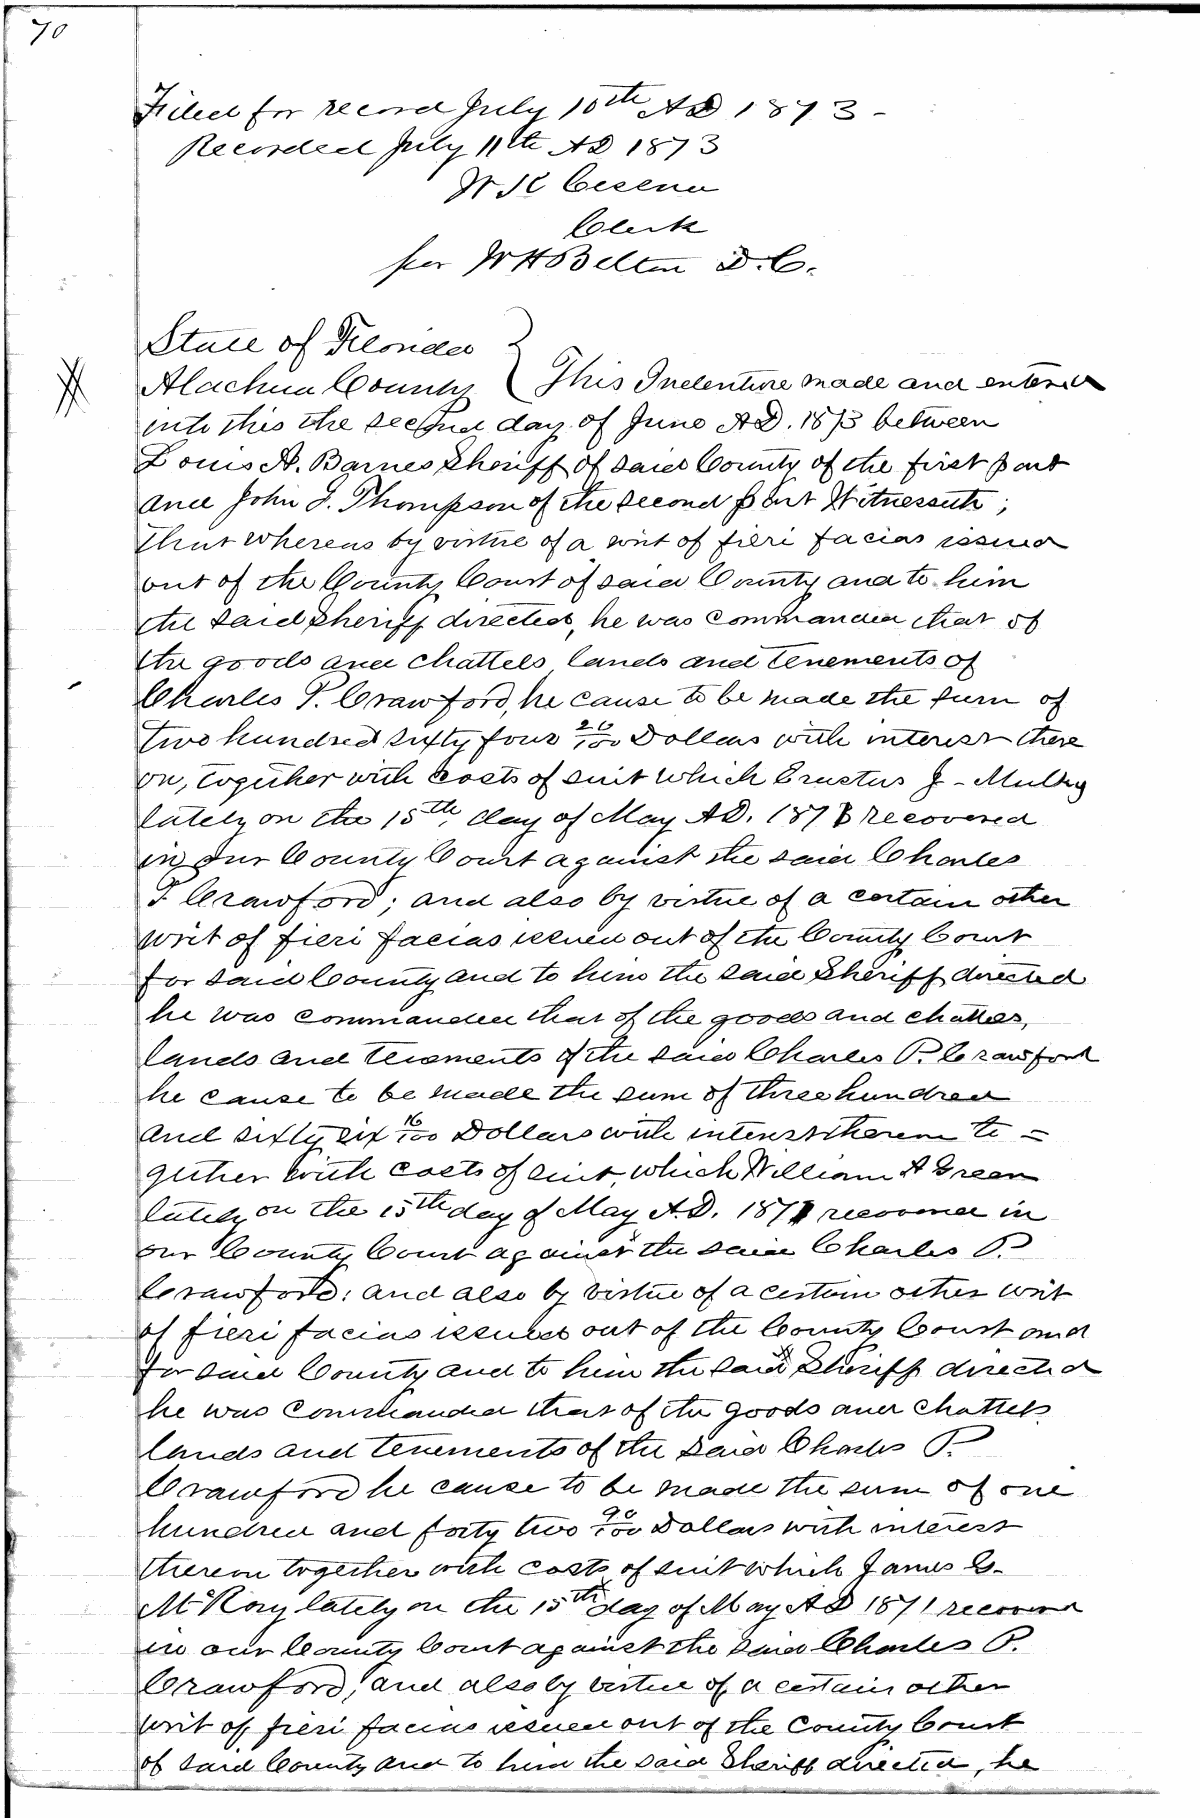 70
Filed for record July 10th AD 1873 -
Recorded July 11th AD 1873
W K Cessna
Clerk
per W H Belton D.C.
State of Florida }
Alachua County { This Indenture made and entered
into this the second day of June AD. 1873 between
Louis A. Barnes Sheriff of said County of the first part
and John J. Thompson of the second part Witnesseth;
that whereas by virtue of a writ of fieri facias issued
out of the County Court of said County and to him
the said Sheriff directed, he was commanded that of
the goods and chattels lands and tenements of
Charles P. Crawford, he cause to be made the sum of
two hundred sixty four 26/100 Dollars with interest there
on, together with costs of suit which Erastus J - Mulky
lately on the 15th. day of May AD. 1871 recovered
in our County Court against the said Charles
P. Crawford; and also by virtue of a certain other
writ of fieri facias issued out of the County Court
for said County and to him the said Sheriff directed
he was commanded that of the goods and chattles,
lands and tenements of the said Charles P. Crawford
he cause to be made the sum of three hundred
and sixty six 16/100 Dollars with interest thereon to =
gether with costs of suit, which William A Green
lately on the 15th day of May A.D. 1871 recovered in
our County Court against the said Charles P.
Crawford: and also by virtue of a certain other writ
of fieri facias issued out of the County Court and
for said County and to him the said Sheriff directed
he was commanded that of the goods and chattels
lands and tenements of the said Charles P.
Crawford he cause to be made the sum of one
hundred and forty two 90/100 Dollars with interest
thereon together with costs of suit which James G.
McRory lately on the 15th day of May AD 1871 recovered
in our County Court against the said Charles P.
Crawford; and also by virtue of a certain other
writ of fieri facias issued out of the County Court
of said County and to him the said Sheriff directed, he